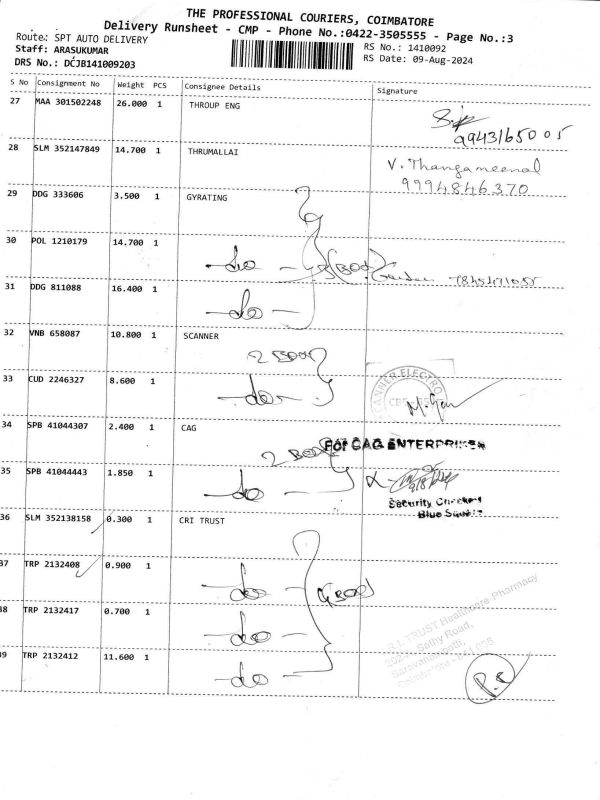 THE PROFESSIONAL COURIERS, COIMBATORE
Delivery Runsheet - CMP - Phone No.:0422-3505555 - Page No.:3
Route: SPT AUTO DELIVERY
Staff: ARASUKUMAR
DRS No.: DCJB141009203
RS No.: 1410092
RS Date: 09-Aug-2024
S No Consignment No Weight PCS Consignee Details Signature
27 MAA 301502248 26.000 1 THROUP ENG
9943165005
28 SLM 352147849 14.700 1 THRUMALLAI
V. Thangameenal
9994846370
29 DDG 333606 3.500 1 GYRATING
30 POL 1210179 14.700 1
-do-
31 DDG 811088 16.400 1
-do-
32 VNB 658087 10.800 1 SCANNER
2 Box
33 CUD 2246327 8.600 1
-do-
SCANNER ELECTRO
34 SPB 41044307 2.400 1 CAG
For CAG ENTERPRISES
2 Box
35 SPB 41044443 1.850 1
-do-
Security Checked
Blue Square
36 SLM 352138158 0.300 1 CRI TRUST
37 TRP 2132408 0.900 1
-do-
38 TRP 2132417 0.700 1
-do-
39 TRP 2132412 11.600 1
-do-
TRUST Healthcare-Pharmacy
Sathy Road,
P.S